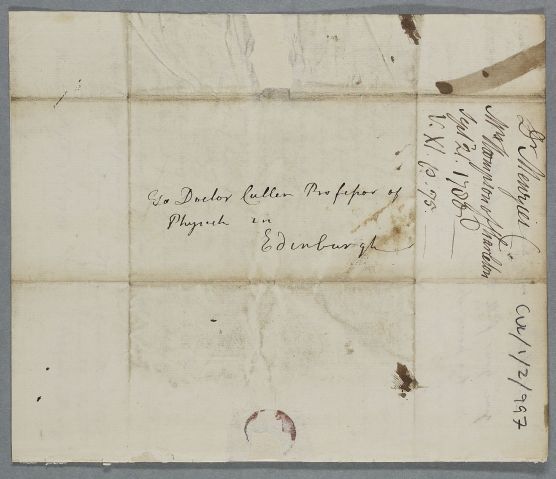 To Doctor Cullen Professor of
Physick in
Edinburgh
Dr Menzies
Mrs Thompson of Charleton
Sept 21. 1780
V. XI p. 95.
CUL/1/2/997